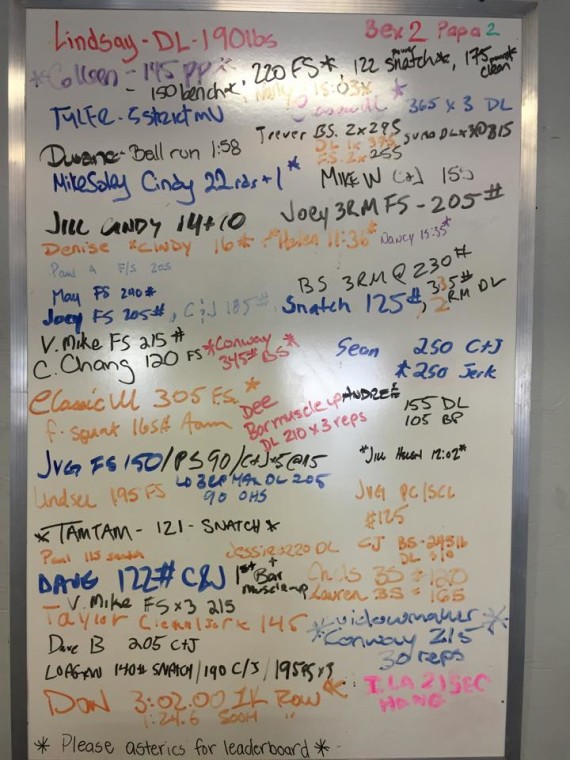 Lindsay-DL-190lbs
Bex 2 Papa 2
*Colleen - 145 PP*, 220 FS*, 122 snatch*, 175 clean
- 150 bench*, 15:03*
TYLER - 5 strict MU
365 x 3 DL
Trever B.S. 2x295
DL 1x395
FS 2x255
Duwane - Ball run 1:58
Mike Cindy 22 rds + 1*
MIKE W C+J 155
JILL CINDY 14+10
Joey 3RM FS - 205#
Denise *Cindy 16* *Helen 11:36*
Nancy 15:35*
Paul A F/S 205
BS 3RM @ 230#
May FS 240#
Joey FS 205#, C+J 185#
Snatch 125#, 335# 2 RM DL
V. Mike FS 215#
*Conway 345# BS*
C. Chang 120 FS
Sean 250 C+J
*250 Jerk
Classic Lil 305 F.S. *
F. Squat 165# Aam
Dee Bar muscle up
DL 210 x 3 reps
ANDRE
155 DL
105 BP
JVG FS 150/PS 90/C+J
3 REP MAX DL 205
90 OHS
*JILL HELEN 12:02*
Lindsey 195 FS
JVG PC/SCL
#125
*TAMTAM - 121 - SNATCH*
Paul 115 snatch
Jessie 220 DL
CJ BS - 245lb
DAVE 122# C&J 1st Bar muscle-up
Chels BS = 120
Lauren BS = 165
V. Mike FS x 3 215
Taylor Clean/Jerk 145
*Widowmaker*
*Conway 215
30 reps
Dave B 205 C+J
LOGAN 140# SNATCH/190 C/J/195
ILA 21 SEC
HANG
DON 3:02.00 1K Row
1:24.6 500M "
* Please asterics for leaderboard *